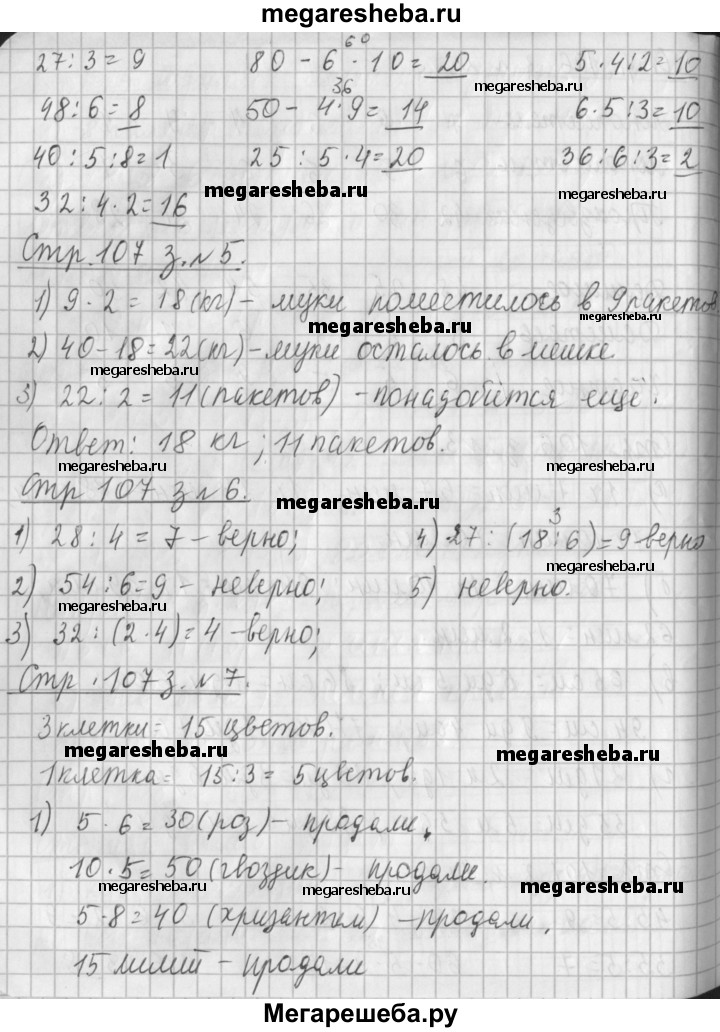 megaresheba.ru
27 : 3 = 9    80 - 6 · 10 = 20    5 · 4 : 2 = 10
60
megaresheba.ru
48 : 6 = 8    50 - 4 · 9 = 14    6 · 5 : 3 = 10
36
40 : 5 : 8 = 1    25 : 5 · 4 = 20    36 : 6 : 3 = 2
megaresheba.ru megaresheba.ru
32 : 4 · 2 = 16
Стр. 107 з. № 5.
1) 9 · 2 = 18 (кг) - муки поместилось в 9 пакетов.
megaresheba.ru megaresheba.ru
2) 40 - 18 = 22 (кг) - муки осталось в мешке.
megaresheba.ru
3) 22 : 2 = 11 (пакетов) - понадобится ещё.
Ответ: 18 кг; 11 пакетов.
megaresheba.ru megaresheba.ru
Стр 107 з № 6.
megaresheba.ru
3
1) 28 : 4 = 7 - верно;    4) 27 : (18 : 6) = 9 - верно
megaresheba.ru
2) 54 : 6 = 9 - неверно;    5) неверно.
megaresheba.ru
3) 32 : (2 · 4) = 4 - верно;
Стр. 107 з. № 7.
3 клетки = 15 цветов.
megaresheba.ru megaresheba.ru
1 клетка = 15 : 3 = 5 цветов.
1) 5 · 6 = 30 (роз) - продали.
10 · 5 = 50 (гвоздик) - продали.
megaresheba.ru megaresheba.ru megaresheba.ru
5 · 8 = 40 (хризантем) - продали,
15 лилий - продали
Мегарешеба.ру